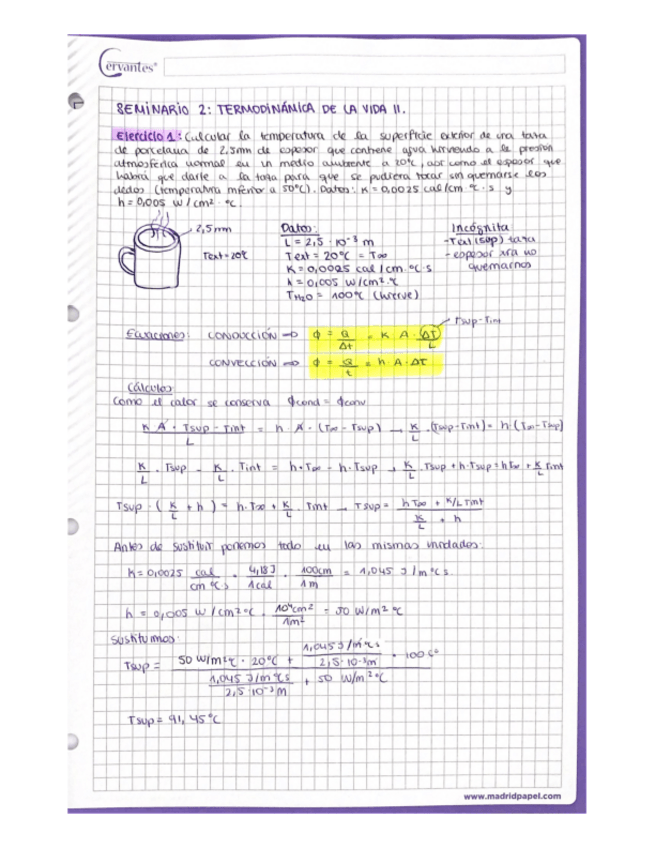 Cervantes®
SEMINARIO 2: TERMODINÁMICA DE LA VIDA II.
Ejercicio 1: Calcular la temperatura de la superficie exterior de una taza
de porcelana de 2,5mm de espesor que contiene agua hirviendo a la presión
atmosférica normal en un medio ambiente a 20ºC, así como el espesor que
habrá que darle a la taza para que se pudiera tocar sin quemarse los
dedos (temperatura inferior a 50ºC). Datos: K = 0,0025 cal/cm · ºC · s y
h = 0,005 W / cm² · ºC.
2,5mm
Text = 20ºC
Datos:
L = 2,5 · 10⁻³ m
Text = 20ºC = T∞
K = 0,0025 cal / cm · ºC · s
h = 0,005 W/cm² · ºC
TH₂O = 100ºC (hierve)
Incógnita
- Text (sup) taza
- espesor para no
quemarnos
Ecuaciones: CONDUCCIÓN → ϕ = Q/Δt = K · A · ΔT/L
Tsup - Tint
CONVECCIÓN → ϕ = Q/t = h · A · ΔT
Cálculos
Como el calor se conserva ϕcond = ϕconv
K A · Tsup - Tint / L = h · A · (T∞ - Tsup) → K/L · (Tsup - Tint) = h · (T∞ - Tsup)
K/L · Tsup - K/L · Tint = h · T∞ - h · Tsup → K/L · Tsup + h · Tsup = h T∞ + K/L Tint
Tsup · (K/L + h) = h · T∞ + K/L · Tint → Tsup = (h T∞ + K/L Tint) / (K/L + h)
Antes de sustituir ponemos todo en las mismas unidades:
K = 0,0025 cal/cm ºC s · 4,18 J/1 cal · 100cm/1m = 1,045 J/m ºC s.
h = 0,005 W/cm² ºC · 10⁴cm²/1m² = 50 W/m² ºC
Sustituimos:
Tsup = (50 W/m² ºC · 20ºC + (1,045 J/m ºC s / 2,5 · 10⁻³m) · 100 Cº) / (1,045 J/m ºC s / 2,5 · 10⁻³ m + 50 W/m² ºC)
Tsup = 91,45ºC
www.madridpapel.com